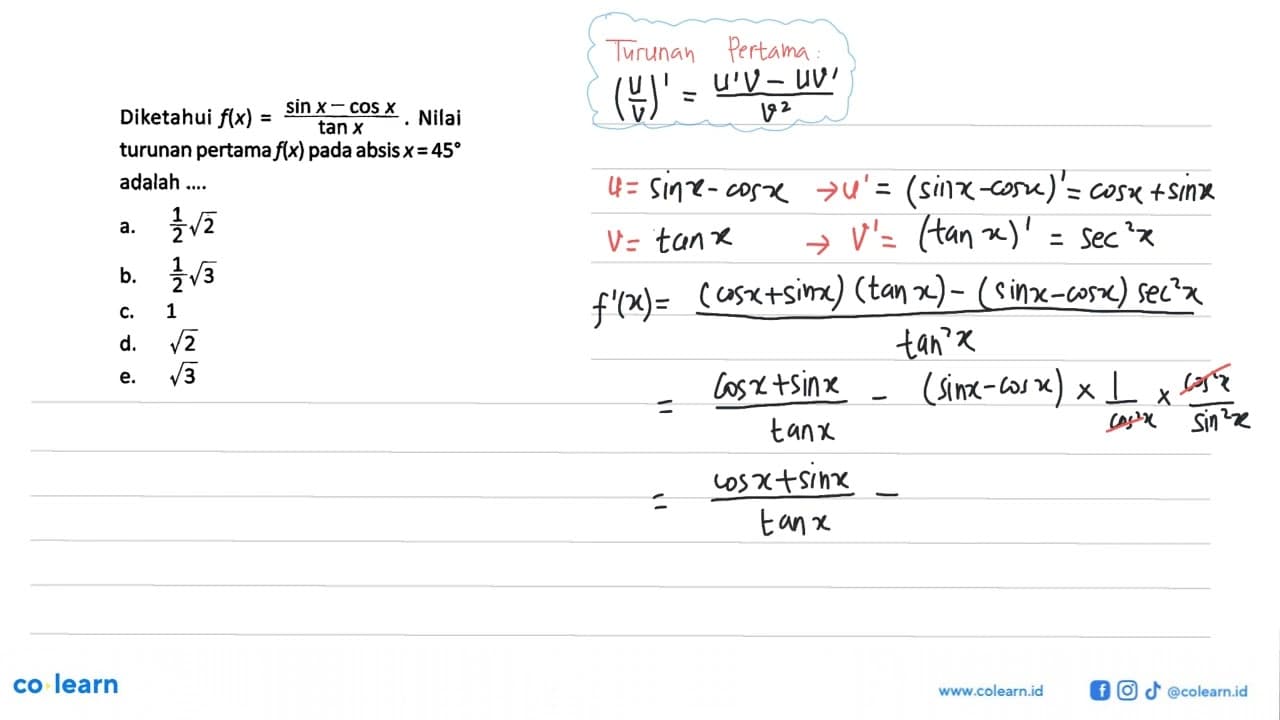 Diketahui f(x) = \frac{sin x – cos x}{tan x}. Nilai
turunan pertama f(x) pada absis x = 45°
adalah ....
a. \frac{1}{2}√2
b. \frac{1}{2}√3
c. 1
d. √2
e. √3
Turunan Pertama:
(\frac{u}{v})' = \frac{u'v – uv'}{v²}
u = sin x – cos x → u' = (sin x – cos x)' = cos x + sin x
v = tan x → v' = (tan x)' = sec²x
f'(x) = \frac{(cos x + sin x)(tan x) – (sin x – cos x) sec²x}{tan²x}
= \frac{cos x + sin x}{tan x} – (sin x – cos x) × \frac{1}{cos²x} × \frac{cos²x}{sin²x}
= \frac{cos x + sin x}{tan x} –
co learn
www.colearn.id
@colearn.id